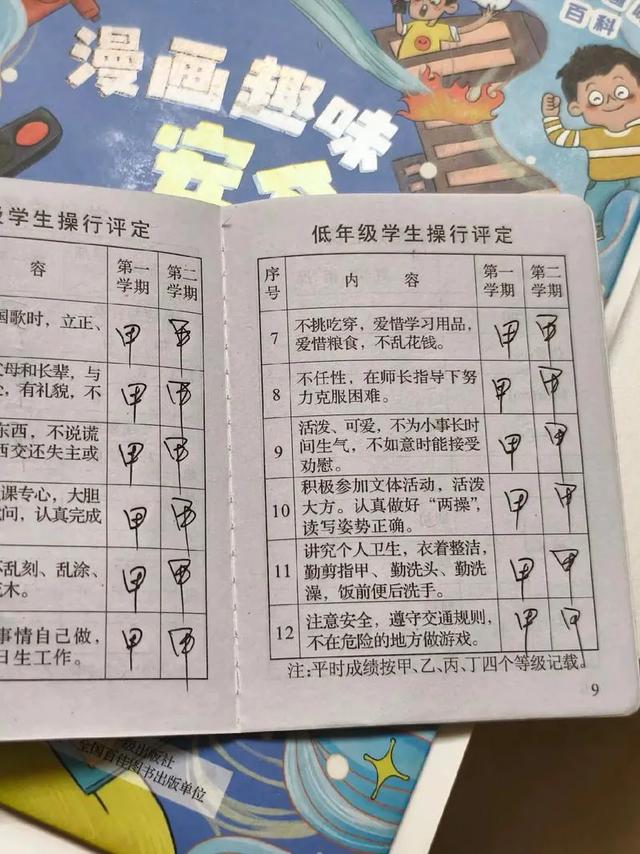 百科
漫画趣味
安全
级学生操行评定
容 第一学期 第二学期
国歌时，立正、 甲
父母和长辈，与
，有礼貌，不 甲
东西，不说谎
西交还失主或 甲
课专心，大胆
问，认真完成 甲
不乱刻、乱涂、
木。 甲
事情自己做，
日生工作。 甲
低年级学生操行评定
序号 内 容 第一学期 第二学期
7 不挑吃穿，爱惜学习用品，
爱惜粮食，不乱花钱。 甲
8 不任性，在师长指导下努
力克服困难。 甲
9 活泼、可爱，不为小事长时
间生气，不如意时能接受
劝慰。 甲 甲
10 积极参加文体活动，活泼
大方。认真做好“两操”，
读写姿势正确。 甲 甲
11 讲究个人卫生，衣着整洁，
勤剪指甲、勤洗头、勤洗
澡，饭前便后洗手。 甲 甲
12 注意安全，遵守交通规则，
不在危险的地方做游戏。 甲
注：平时成绩按甲、乙、丙、丁四个等级记载。
9
出版社
全国百佳图书出版单位